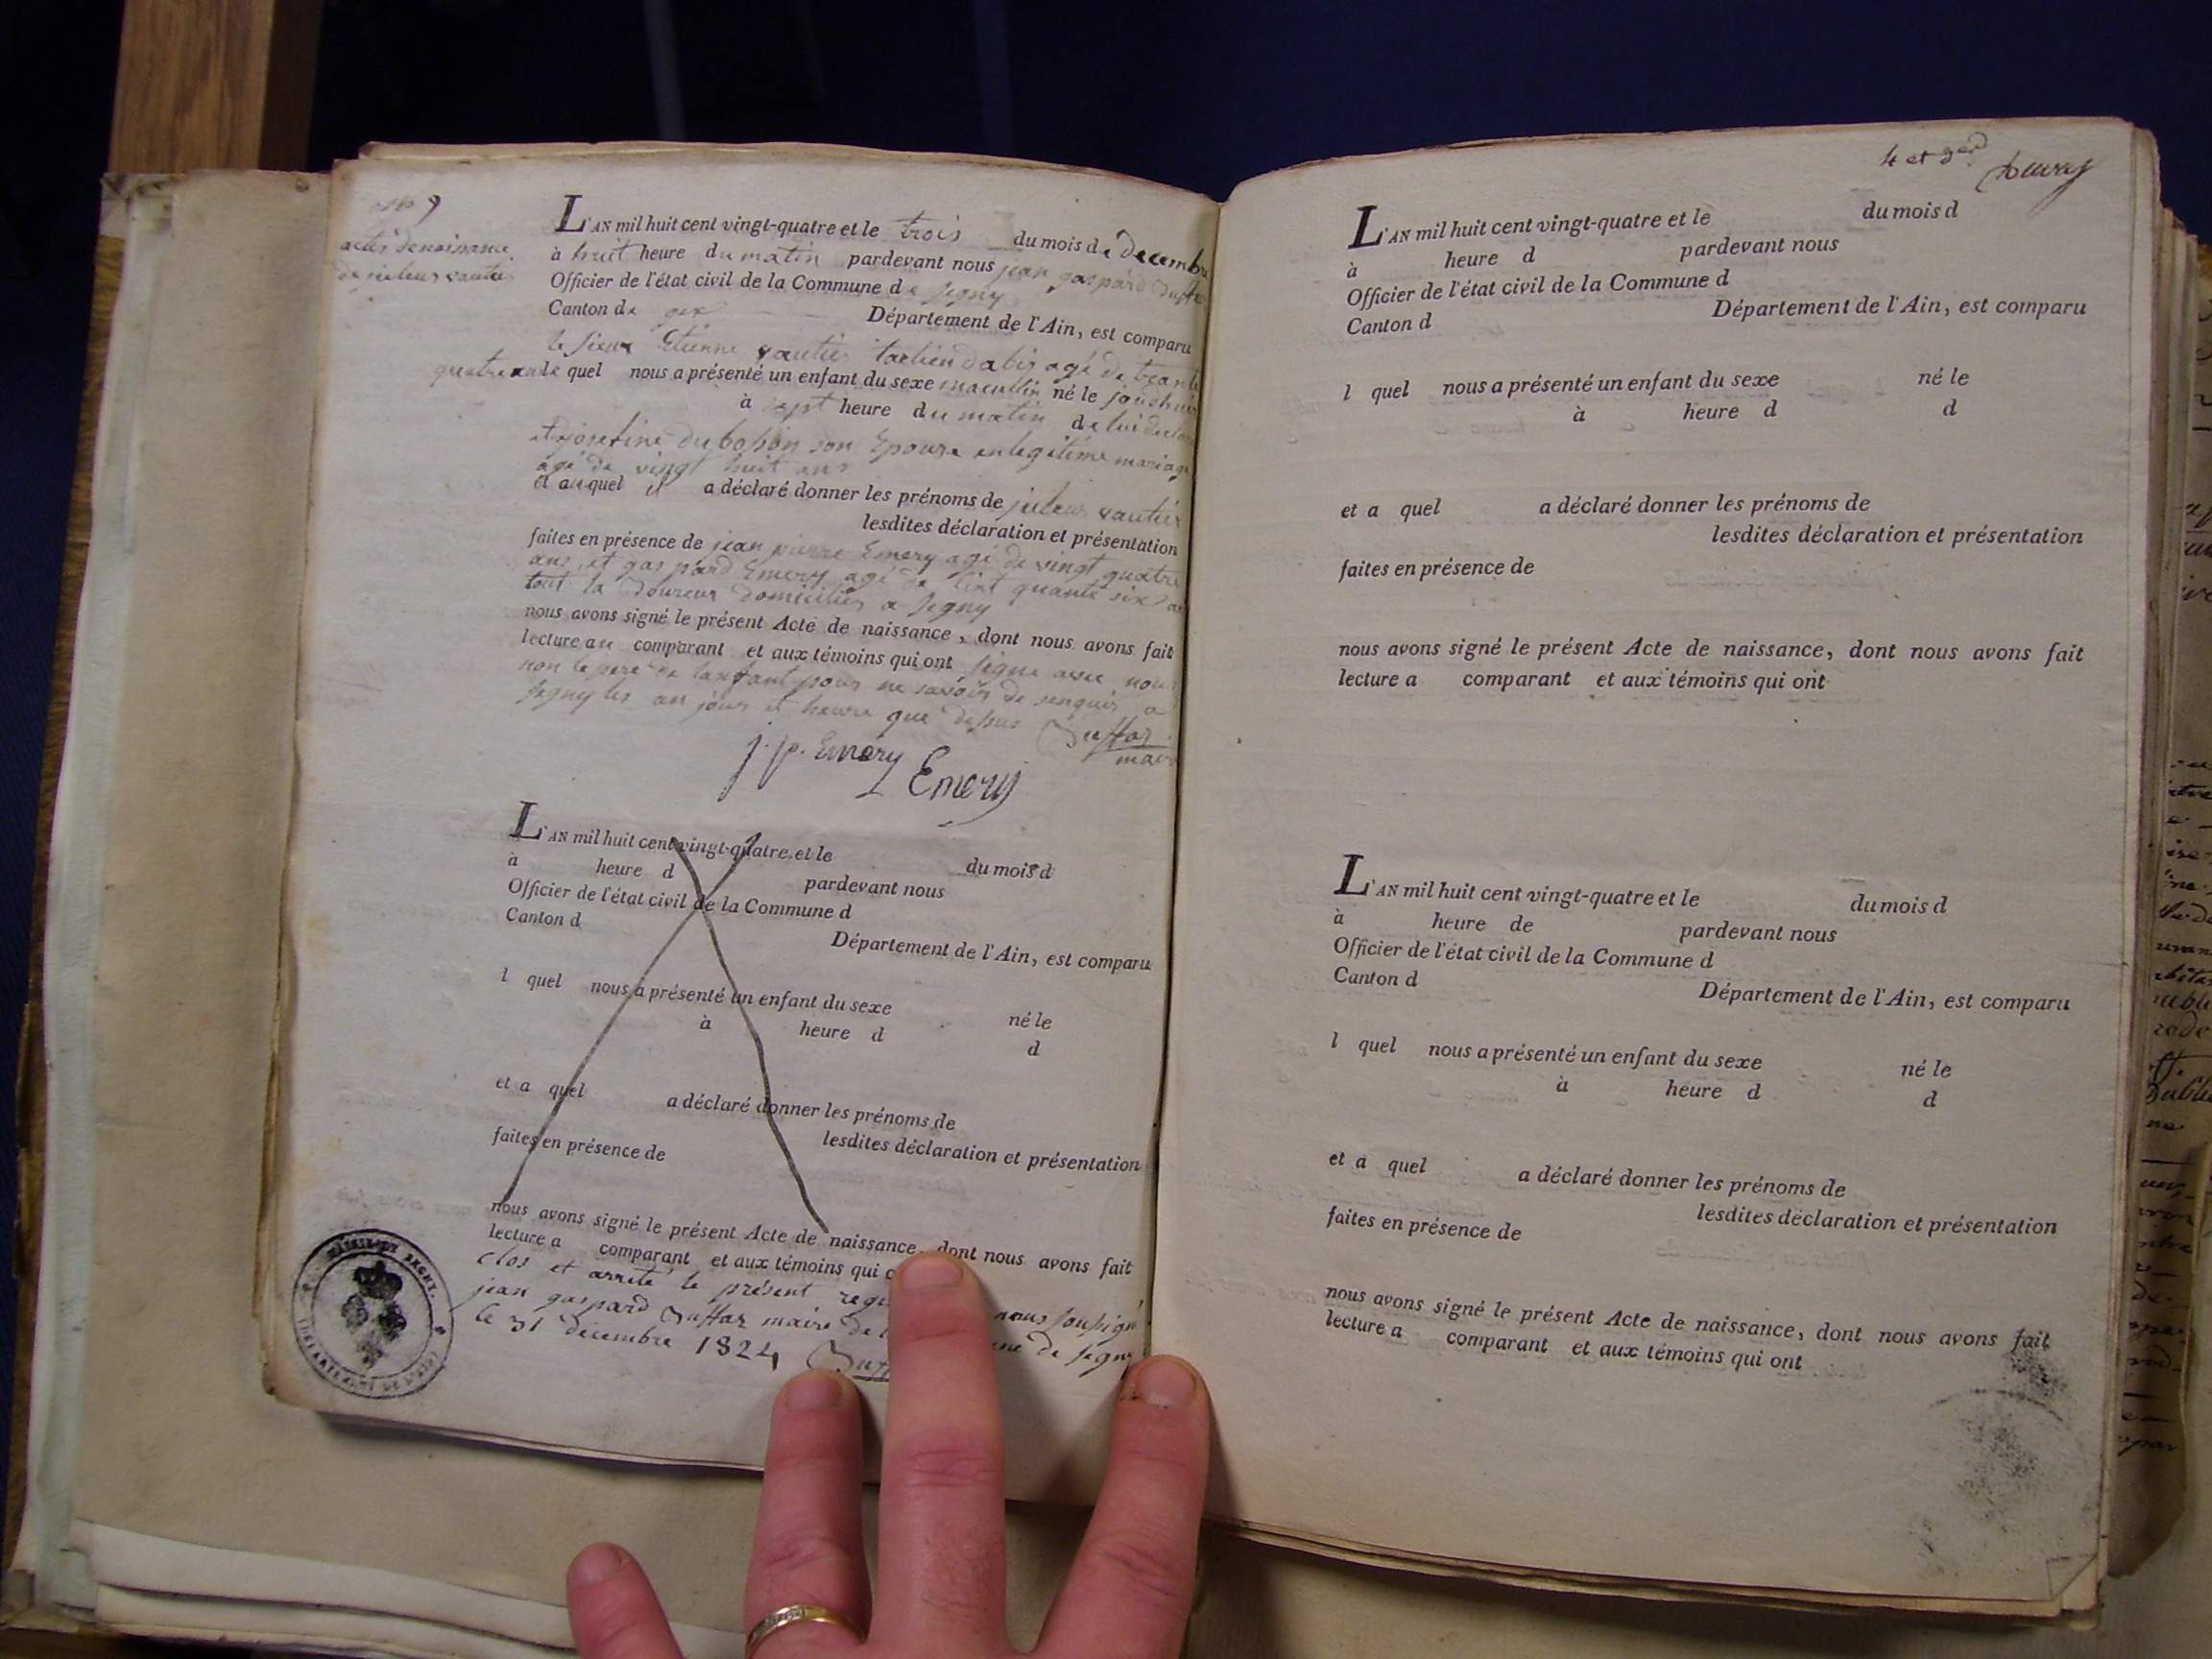 actes de naissance
L'AN mil huit cent vingt-quatre et le trois du mois de decembr
à huit heure du matin pardevant nous jean gaspard
Officier de l'état civil de la Commune de Segny
Canton de gex Département de l'Ain, est comparu
le sieur Etienne vautier agé de trante
quatre ans le quel nous a présenté un enfant du sexe masculin né le
à sept heure du matin de lui
et josefine dubosson son Epouse en legitime mariage
agé de vingt huit ans
et auquel il a déclaré donner les prénoms de juleus vautier
lesdites déclaration et présentation
faites en présence de jean pierre Emery agé de vingt quatre
ans et gaspard Emery agé de cint quante six
tout la domiciliés a Segny
nous avons signé le présent Acte de naissance, dont nous avons fait
lecture au comparant et aux témoins qui ont signe avec nous
non le pere de lanfant pour ne savoir de a
Segny les an jour et heure que dessus
maire
j. p. Emery Emery
L'AN mil huit cent vingt-quatre et le du mois d
à heure d pardevant nous
Officier de l'état civil de la Commune d
Canton d Département de l'Ain, est comparu
l quel nous a présenté un enfant du sexe né le
à heure d d
et a quel a déclaré donner les prénoms de
lesdites déclaration et présentation
faites en présence de
nous avons signé le présent Acte de naissance, dont nous avons fait
lecture a comparant et aux témoins qui
clos et arreté le présent nous soussigné
jean gaspard maire de de Segny
le 31 decembre 1824
4 et
L'AN mil huit cent vingt-quatre et le du mois d
à heure d pardevant nous
Officier de l'état civil de la Commune d
Canton d Département de l'Ain, est comparu
l quel nous a présenté un enfant du sexe né le
à heure d d
et a quel a déclaré donner les prénoms de
lesdites déclaration et présentation
faites en présence de
nous avons signé le présent Acte de naissance, dont nous avons fait
lecture a comparant et aux témoins qui ont
L'AN mil huit cent vingt-quatre et le du mois d
à heure de pardevant nous
Officier de l'état civil de la Commune d
Canton d Département de l'Ain, est comparu
l quel nous a présenté un enfant du sexe né le
à heure d d
et a quel a déclaré donner les prénoms de
lesdites déclaration et présentation
faites en présence de
nous avons signé le présent Acte de naissance, dont nous avons fait
lecture a comparant et aux témoins qui ont